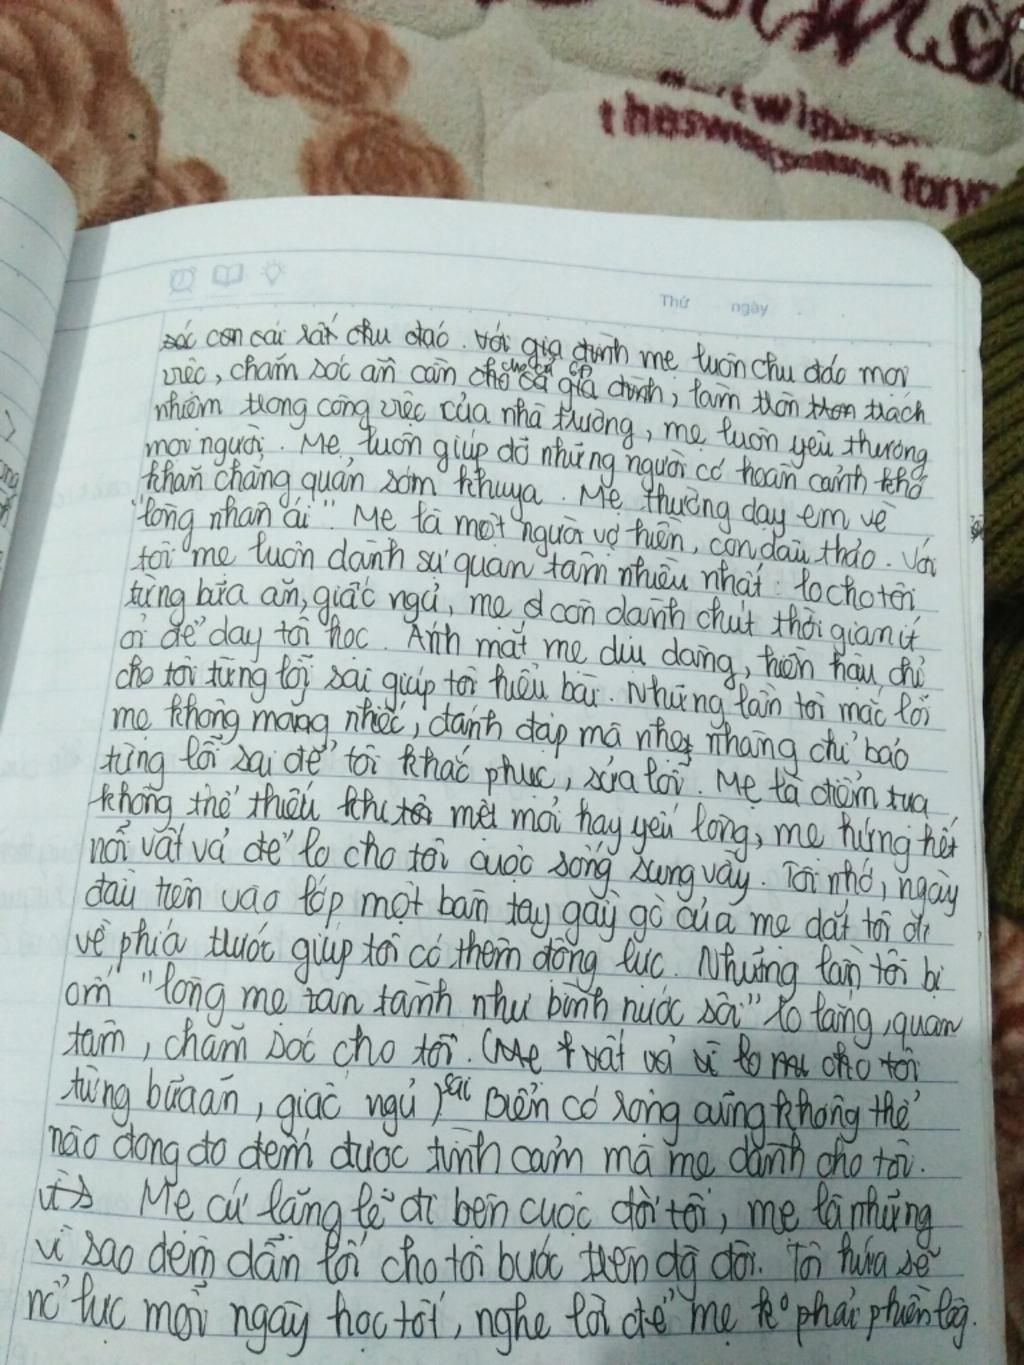 the
for
Thứ ngày
sóc con cái rất chu đáo. Với gia đình mẹ luôn chu đáo mọi
việc, chăm sóc ân cần cho cả gia đình; làm tròn trách
nhiệm trong công việc của nhà trường, mẹ luôn yêu thương
mọi người. Mẹ luôn giúp đỡ những người có hoàn cảnh khó
khăn chẳng quản sớm khuya. Mẹ thường dạy em về
"lòng nhân ái". Mẹ là một người vợ hiền, con dâu thảo. Với
tôi mẹ luôn dành sự quan tâm nhiều nhất: lo cho tôi
từng bữa ăn, giấc ngủ, mẹ còn dành chút thời gian ít
ỏi để dạy tôi học. Ánh mắt mẹ dịu dàng, hiền hậu, chỉ
cho tôi từng lỗi sai giúp tôi hiểu bài. Những lần tôi mắc lỗi
mẹ không mắng nhiếc, đánh đập mà nhẹ nhàng chỉ bảo
từng lỗi sai để tôi khắc phục, sửa lỗi. Mẹ là điểm tựa
không thể thiếu khi tôi mệt mỏi hay yếu lòng, mẹ hứng hết
nỗi vất vả để lo cho tôi cuộc sống sung vầy. Tôi nhớ, ngày
đầu tiên vào lớp một bàn tay gầy gò của mẹ dắt tôi đi
về phía trước giúp tôi có thêm động lực. Những lần tôi bị
ốm "lòng mẹ tan tành như bình nước sôi" lo lắng, quan
tâm, chăm sóc cho tôi. (Mẹ vất vả vì lo cho tôi
từng bữa ăn, giấc ngủ) sai Biển có rộng cũng không thể
nào đong đo đếm được tình cảm mà mẹ dành cho tôi.
Mẹ cứ lặng lẽ đi bên cuộc đời tôi, mẹ là những
vì sao đêm dẫn lối cho tôi bước trên đà đời. Tôi hứa sẽ
nỗ lực mỗi ngày học tốt, nghe lời để mẹ ko phải phiền lòng.